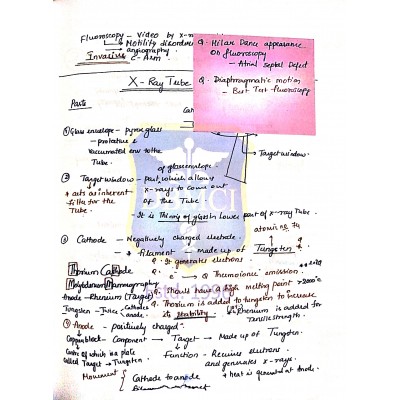 Fluoroscopy - Video by x-r
Motility disorders
angiography.
Invasive C-Arm
Q. Hilar Dance appearance
on fluoroscopy
- Atrial Septal Defect
Q. Diaphragmatic motion
- Best Test fluoroscopy
X-Ray Tube
Parts
Cat
① Glass envelope - pyrex glass
- protects &
vaccumated env to the
Tube.
of glass envelope.
Target window
② Target window - part which allows
x-rays to come out
of the Tube
* acts as inherent
filter for the
Tube.
- It is Thining of glass in lower part of x-ray Tube
atomic no. 74
③ Cathode - Negatively charged electrode.
* filament made up of Tungsten
Q. It generates electrons.
Thorium Cathode
Q. e⁻ → Q Thermoionic emission.
Molybdenum Mammography
Q. Should have a high melting point >2000°c
Anode - Rhenium (Target)
Q. Thorium is added to tungsten to increase
its stability
Tungsten - Twice Cathode
anode.
Rhenium is added for
Tensile strength.
Estd. 199
④ Anode - positively charged.
Copper block - Component → Target → Made up of Tungsten.
Centre of which is a plate
called Target → Tungsten.
Function - Recieves electrons
and generates x-rays.
* heat is generated at Anode.
Movement
Cathode to anode